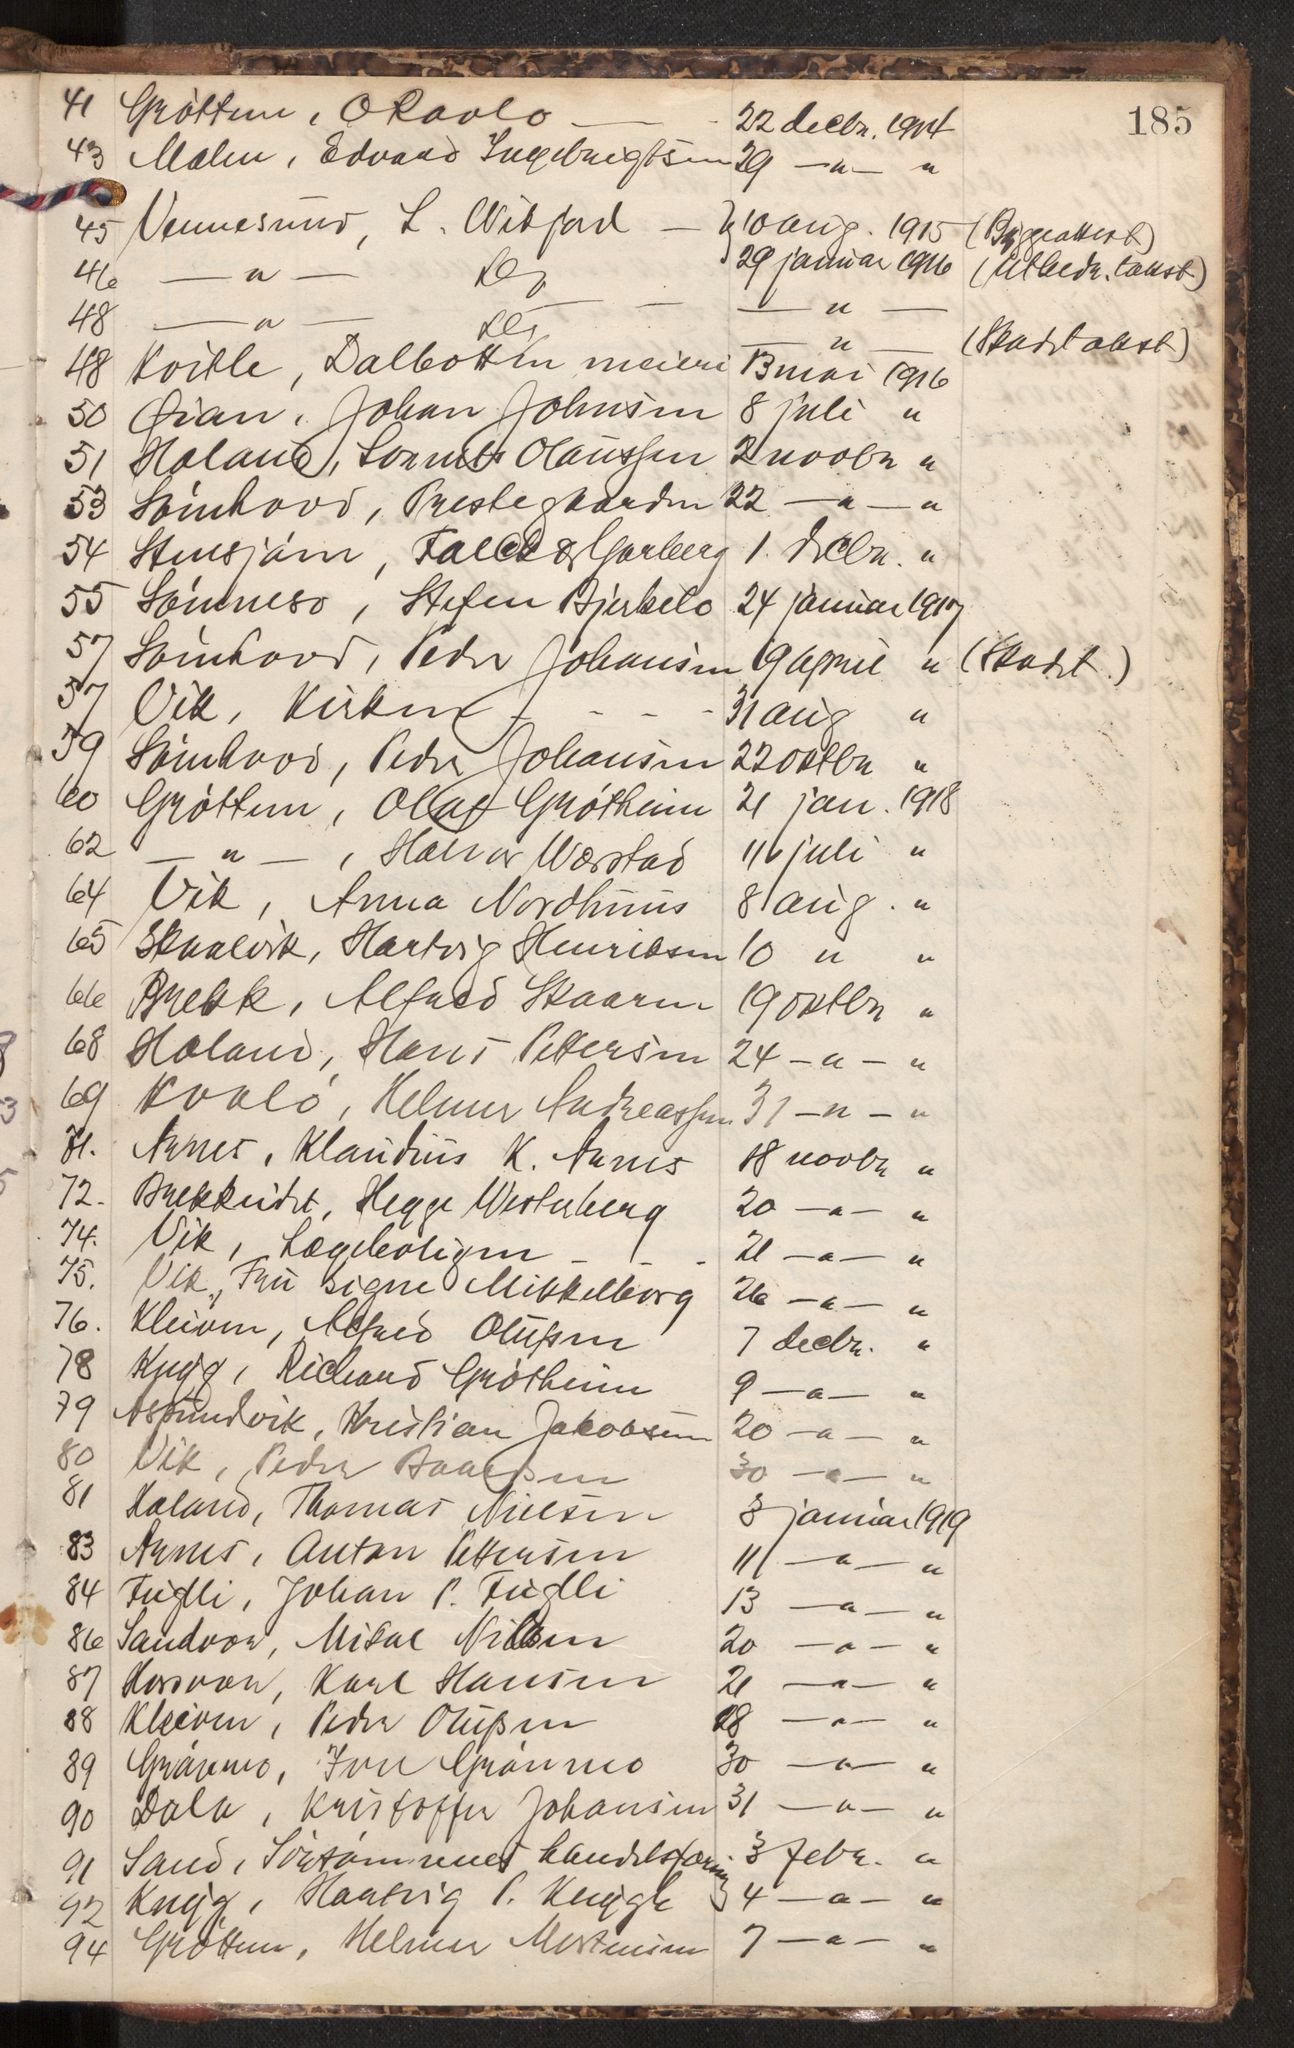 185
41 Gröttem, O Ravlo — 22 decbr. 1914
43 Malm, Edvard Ingebrigtsen 29 —„— „
45 Vennesund, L. Wibfard — 10 aug. 1915 (Byggeattest)
46 —„— Do, 29 januar 1916 (Utbedr. takst)
48 —„— — — —„—
Do, —„— (Skadetakst)
48 Kvitle, Dalbotten meieri 13 mai 1916
50 Øian, Johan Johnsen 8 juli „
51 Haland, Lorents Olaussen 2 novbr „
53 Sömhovd, Prestegaarden 22 —„— „
54 Stensjöen, Falch & Garberg 1. decbr. „
55 Sömnesø, Stefen Bjerkelo 24 januar 1917
57 Sömhovd, Peder Johansen 19 april „ (Skadet.)
57 Vik, Kirken - - - - 31 aug „
59 Sömhovd, Peder Johansen 22 oktbr „
60 Gröttem, Olaf Grötheim 21 jan. 1918
62 —„—, Halvor Worstad 16 juli „
64 Vik, Anna Nordhuus 8 aug. „
65 Skaalvik, Hartvig Henriksen 10 „ „
66 Brekk, Alfred Skaaren 19 oktbr „
68 Haland, Hans Pettersen 24 —„— „
69 Kvalö, Helmer Andreassen 31 —„— „
71. Arnes, Klaudius K. Arnes 18 novbr „
72. Brekkeidet, Hegge Westerberg 20 —„— „
74. Vik, Lægeboligen - - - 21 —„— „
75. Vik, Fru Signe Mikkelborg 26 —„— „
76. Kleiven, Alfred Olufsen 7 decbr. „
78 Krygg, Richard Grötheim 9 —„— „
79 Aspundvik, Kristian Jakobsen 20 —„— „
80 Vik, Peder Baardsen 30 —„— „
81 Haland, Thomas Nielsen 3 januar 1919
83 Arnes, Anton Pettersen 11 —„— „
84 Fuglli, Johan P. Fuglli 13 —„— „
86 Sandvær, Mikal Nilsen 20 —„— „
87 Horsvær, Karl Hansen 21 —„— „
88 Kleiven, Peder Olufsen 28 —„— „
89 Grönmo, Iver Grönmo 30 —„— „
90 Dala, Kristoffer Johansen 31 —„— „
91 Sand, Sörsömnes handelsforening 3 febr. „
92 Krygg, Hartvig P. Krygge 4 —„— „
94 Gröttem, Helmer Mortensen 7 —„— „